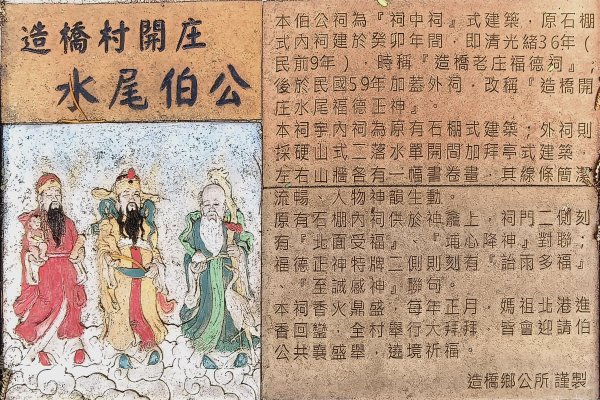 造橋村開庄
水尾伯公
本伯公祠為『祠中祠』式建築，原石棚
式內祠建於癸卯年間，即清光緒36年（
民前9年），時稱『造橋老庄福德祠』；
後於民國59年加蓋外祠，改稱『造橋開
庄水尾福德正神』。
本祠宇內祠為原有石棚式建築；外祠則
採硬山式二落水單開間加拜亭式建築。
左右山牆各有一幅書卷畫，其線條簡潔
流暢、人物神韻生動。
原有石棚內祠供於神龕上，祠門二側刻
有『北面受福』、『埔心降神』對聯；
福德正神特牌二側則刻有『詒雨多福』
、『至誠感神』聯句。
本祠香火鼎盛，每年正月，媽祖北港進
香回鑾，全村舉行大拜拜，皆會迎請伯
公共襄盛舉，遶境祈福。
造橋鄉公所 謹製